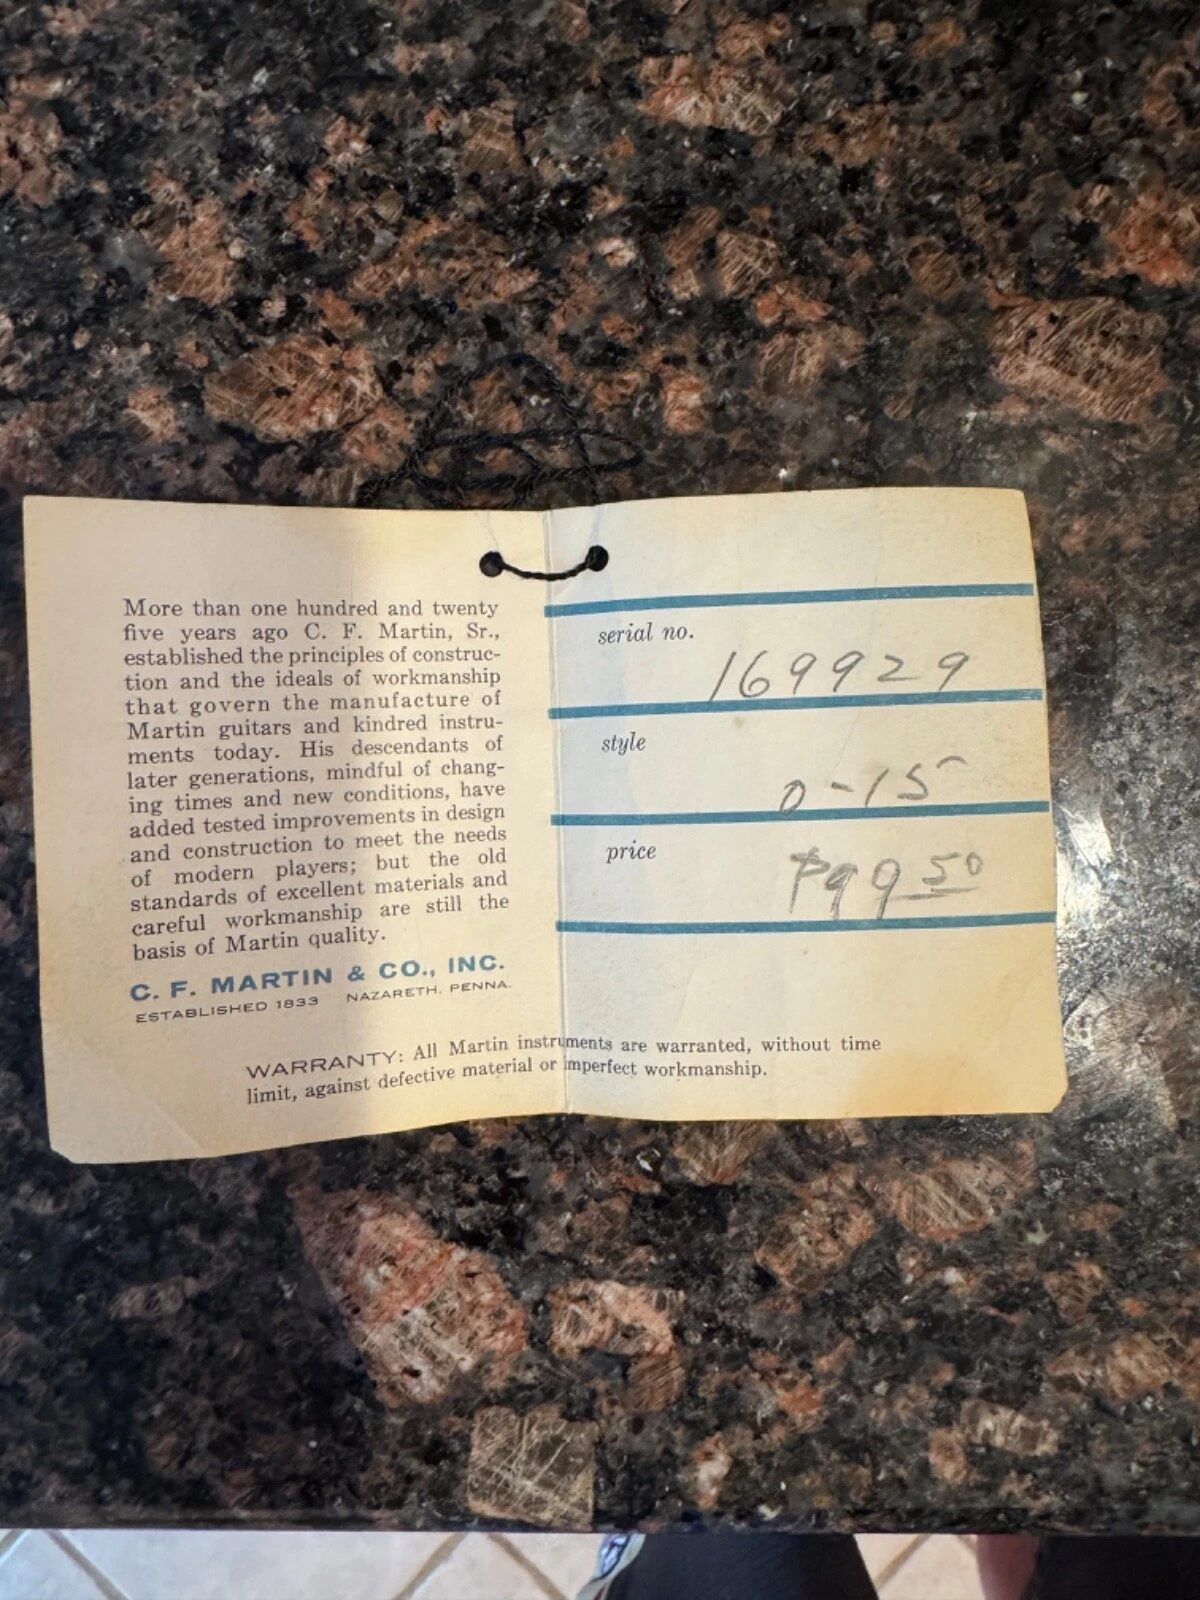 More than one hundred and twenty
five years ago C. F. Martin, Sr.,
established the principles of construc-
tion and the ideals of workmanship
that govern the manufacture of
Martin guitars and kindred instru-
ments today. His descendants of
later generations, mindful of chang-
ing times and new conditions, have
added tested improvements in design
and construction to meet the needs
of modern players; but the old
standards of excellent materials and
careful workmanship are still the
basis of Martin quality.
C. F. MARTIN & CO., INC.
ESTABLISHED 1833 NAZARETH, PENNA.
serial no.
169929
style
0-15
price
$99.50
WARRANTY: All Martin instruments are warranted, without time
limit, against defective material or imperfect workmanship.